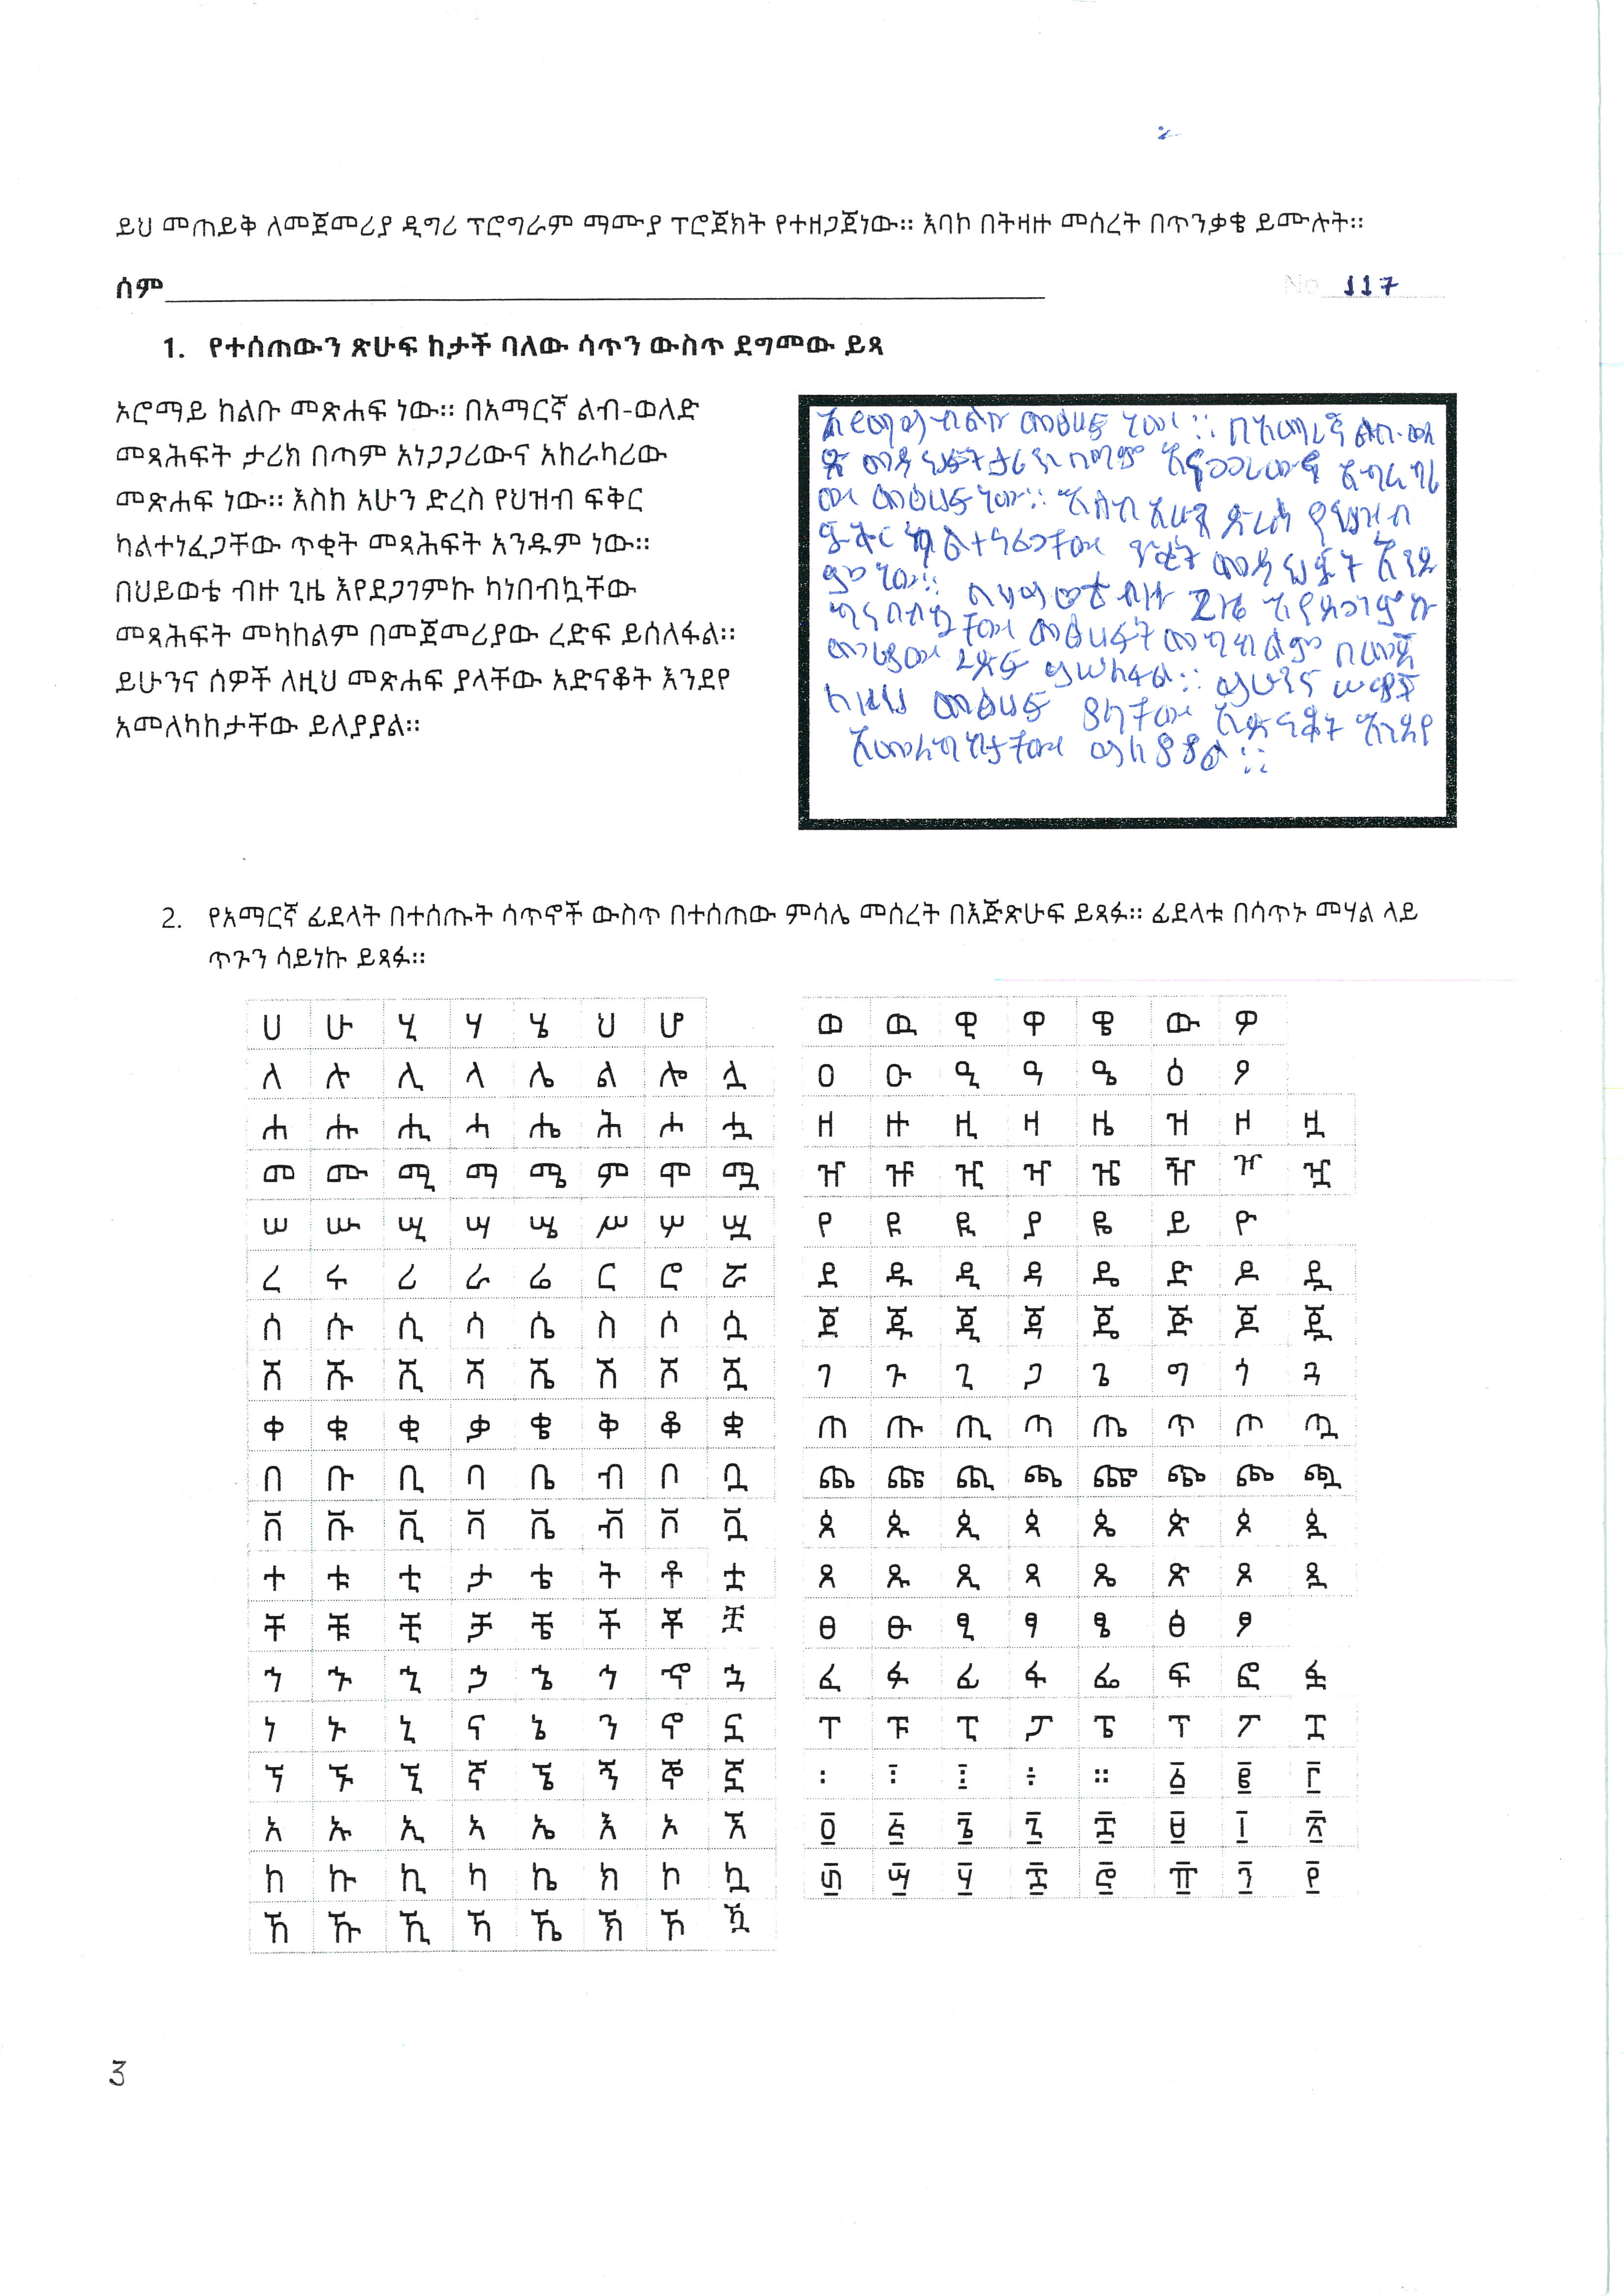 ይህ መጠይቅ ለመጀመሪያ ዲግሪ ፕሮግራም ማሙያ ፕሮጀክት የተዘጋጀነው። እባኮ በትዛዙ መሰረት በጥንቃቄ ይሙሉት።
ሰም No 117
1. የተሰጠውን ጽሁፍ ከታች ባለው ሳጥን ውስጥ ደግመው ይጻ
ኦሮማይ ከልቡ መጽሐፍ ነው። በአማርኛ ልብ-ወለድ
መጻሕፍት ታሪክ በጣም አነጋጋሪውና አከራካሪው
መጽሐፍ ነው። እስከ አሁን ድረስ የህዝብ ፍቅር
ካልተነፈጋቸው ጥቂት መጻሕፍት አንዱም ነው።
በህይወቴ ብዙ ጊዜ እየደጋገምኩ ካነበብኳቸው
መጻሕፍት መካከልም በመጀመሪያው ረድፍ ይሰለፋል።
ይሁንና ሰዎች ለዚህ መጽሐፍ ያላቸው አድናቆት እንደየ
አመለካከታቸው ይለያያል።
መፅሀፍ ነው። በአማረኛ ልብ-ወለ
ድ መዳህፍት ታሪክ በጣም
ው መፅሀፍ ነው። እስከ አሁን ድረስ የህዝብ
ፍቅር ካልተነፈጋቸው ጥቂት መዳህፍት አንዱ
ም ነው። በሂይወቴ ብዙ ጊዜ እየደጋገምኩ
ካናበብኳቸው መፅሀፍት መካከልም በመጀ
ረድፍ ይሠለፋል። ይሁንና ሠዎች
ለዚህ መፅሀፍ ያላቸው አድናቆት እንደየ
አመለካከታቸው ይለያያል።
2. የአማርኛ ፊደላት በተሰጡት ሳጥኖች ውስጥ በተሰጠው ምሳሌ መሰረት በእጅጽሁፍ ይጻፉ። ፊደላቱ በሳጥኑ መሃል ላይ
ጥጉን ሳይነኩ ይጻፉ።
ሀ ሁ ሂ ሃ ሄ ህ ሆ
ለ ሉ ሊ ላ ሌ ል ሎ ሏ
ሐ ሑ ሒ ሓ ሔ ሕ ሖ ሗ
መ ሙ ሚ ማ ሜ ም ሞ ሟ
ሠ ሡ ሢ ሣ ሤ ሥ ሦ ሧ
ረ ሩ ሪ ራ ሬ ር ሮ ሯ
ሰ ሱ ሲ ሳ ሴ ስ ሶ ሷ
ሸ ሹ ሺ ሻ ሼ ሽ ሾ ሿ
ቀ ቁ ቂ ቃ ቄ ቅ ቆ ቋ
በ ቡ ቢ ባ ቤ ብ ቦ ቧ
ቨ ቩ ቪ ቫ ቬ ቭ ቮ ቯ
ተ ቱ ቲ ታ ቴ ት ቶ ቷ
ቸ ቹ ቺ ቻ ቼ ች ቾ ቿ
ኀ ኁ ኂ ኃ ኄ ኅ ኆ ኋ
ነ ኑ ኒ ና ኔ ን ኖ ኗ
ኘ ኙ ኚ ኛ ኜ ኝ ኞ ኟ
አ ኡ ኢ ኣ ኤ እ ኦ ኧ
ከ ኩ ኪ ካ ኬ ክ ኮ ኳ
ኸ ኹ ኺ ኻ ኼ ኽ ኾ ዃ
ወ ዉ ዊ ዋ ዌ ው ዎ
ዐ ዑ ዒ ዓ ዔ ዕ ዖ
ዘ ዙ ዚ ዛ ዜ ዝ ዞ ዟ
ዠ ዡ ዢ ዣ ዤ ዥ ዦ ዧ
የ ዩ ዪ ያ ዬ ይ ዮ
ደ ዱ ዲ ዳ ዴ ድ ዶ ዷ
ጀ ጁ ጂ ጃ ጄ ጅ ጆ ጇ
ገ ጉ ጊ ጋ ጌ ግ ጎ ጓ
ጠ ጡ ጢ ጣ ጤ ጥ ጦ ጧ
ጨ ጩ ጪ ጫ ጬ ጭ ጮ ጯ
ጰ ጱ ጲ ጳ ጴ ጵ ጶ ጷ
ጸ ጹ ጺ ጻ ጼ ጽ ጾ ጿ
ፀ ፁ ፂ ፃ ፄ ፅ ፆ
ፈ ፉ ፊ ፋ ፌ ፍ ፎ ፏ
ፐ ፑ ፒ ፓ ፔ ፕ ፖ ፗ
፡ ፣ ፤ ÷ ። ፩ ፪ ፫
፬ ፭ ፮ ፯ ፰ ፱ ፲ ፳
፴ ፵ ፶ ፷ ፸ ፹ ፺ ፻
3